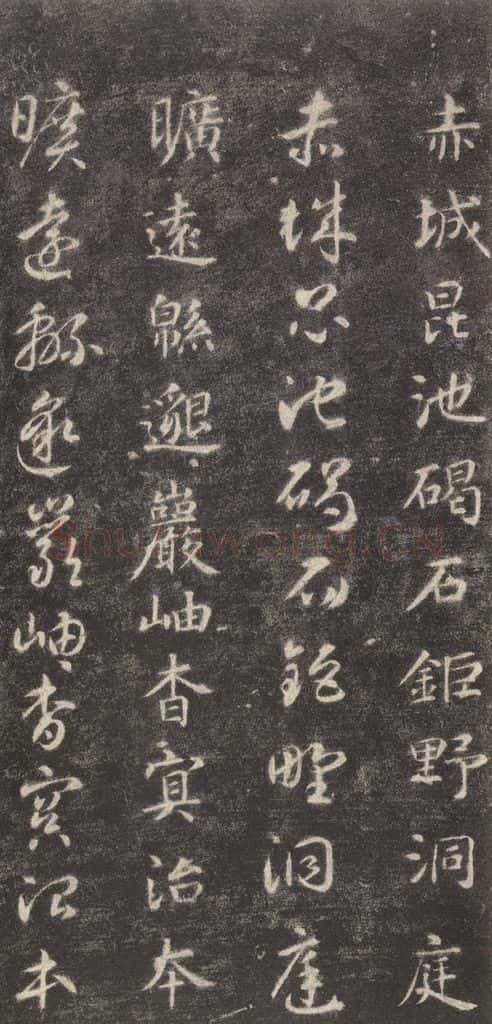 赤城昆池碣石鉅野洞庭
赤城昆池碣石鉅野洞庭
曠遠緜邈巖岫杳冥治本
曠遠緜邈巖岫杳冥治本
Shufawang.CN